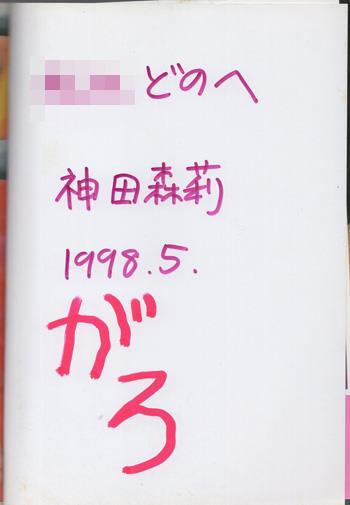 どのへ
神田森莉
1998.5.
がろ